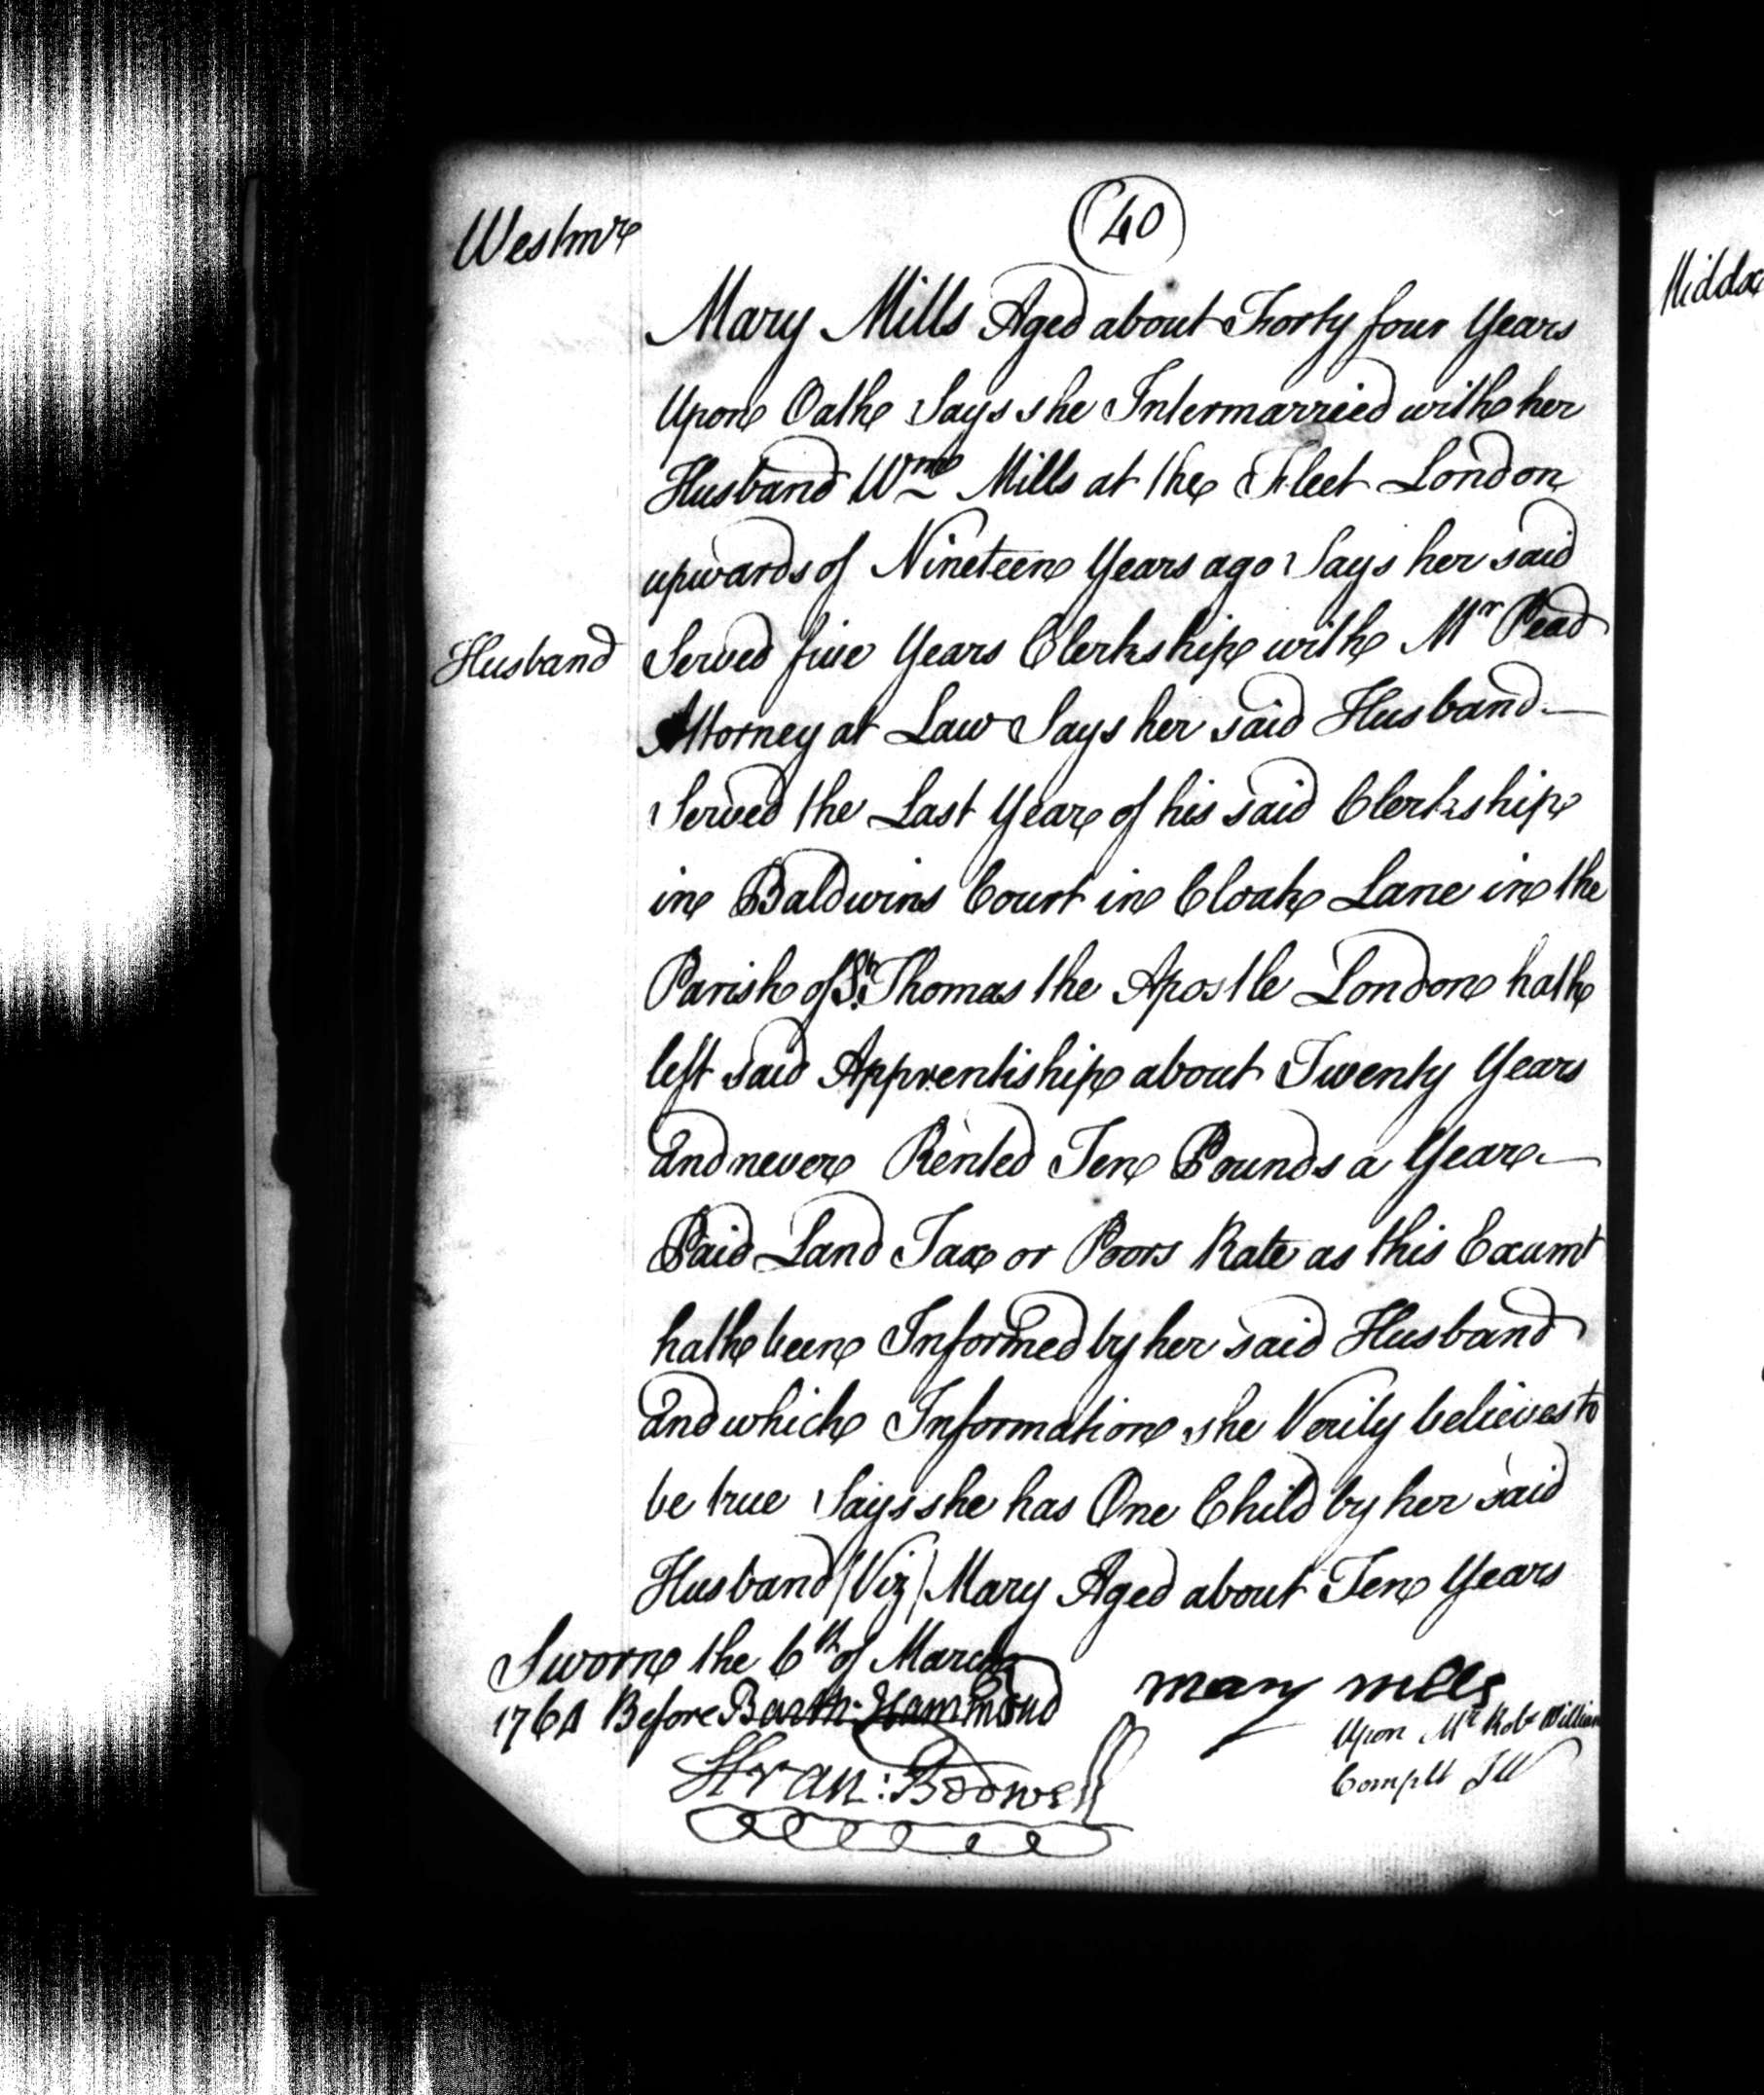 40
Westmr
Mary Mills Aged about Forty four Years
Upon Oath Says she Intermarried with her
Husband Wm Mills at the Fleet London
upwards of Nineteen Years ago Says her said
Husband Served five Years Clerkship with Mr Pead
Attorney at Law Says her said Husband
Served the Last Year of his said Clerkship
in Baldwins Court in Cloak Lane in the
Parish of St Thomas the Apostle London hath
left said Apprentiship about Twenty Years
and never Rented Ten Pounds a Year
Paid Land Tax or Poors Rate as this Examt
hath been Informed by her said Husband
and which Information she Verily believes to
be true Says she has One Child by her said
Husband (Viz) Mary Aged about Ten Years
Sworn the 6th of March
1764 Before Barth: Hammond
mary mills
Upon Mr Robt William
Complt JW
Fran: Bodwell
Middx